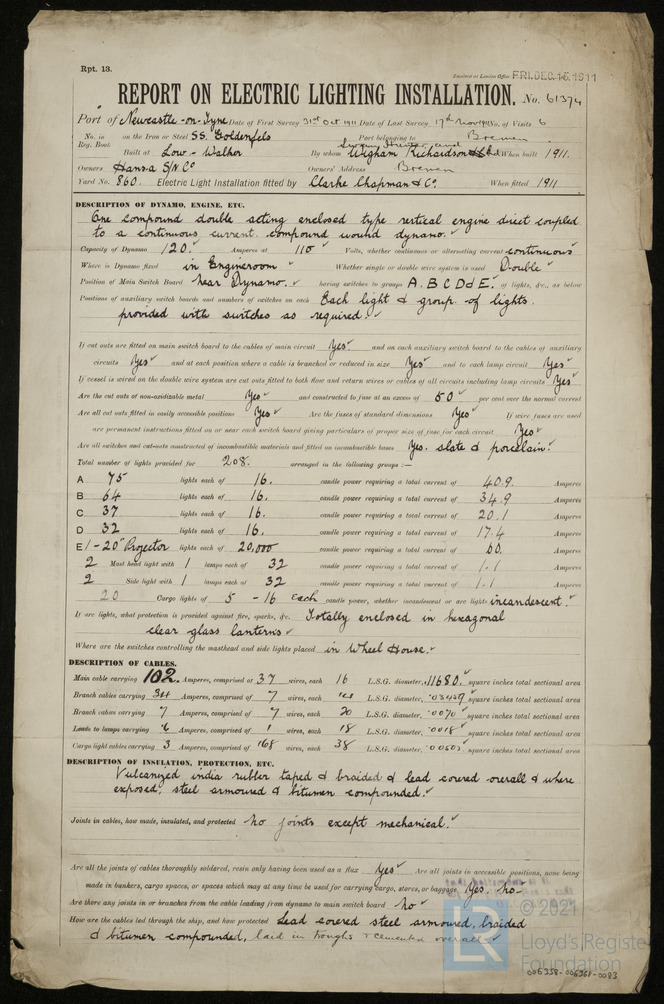 Rpt. 13.
Received at London Office FRI. DEC. 15. 1911
REPORT ON ELECTRIC LIGHTING INSTALLATION. No. 61374
Port of Newcastle-on-Tyne Date of First Survey 31st Oct 1911 Date of Last Survey 17d Nov 1911 No. of Visits 6
No. in Reg. Book on the Iron or Steel SS. Goldenfels Port belonging to Bremen
Built at Low-Walker By whom Wigham Richardson & Ltd When built 1911.
Owners Hansa S/N Co Owners' Address Bremen
Yard No. 860. Electric Light Installation fitted by Clarke Chapman & Co. When fitted 1911
DESCRIPTION OF DYNAMO, ENGINE, ETC.
One compound double acting enclosed type vertical engine direct coupled
to a continuous current compound wound dynamo.
Capacity of Dynamo 120. Amperes at 110 Volts, whether continuous or alternating current continuous
Where is Dynamo fixed in Engineroom Whether single or double wire system is used Double
Position of Main Switch Board Near Dynamo. having switches to groups A. B C D d E. of lights, &c., as below
Positions of auxiliary switch boards and numbers of switches on each Each light & group of lights
provided with switches as required.
If cut outs are fitted on main switch board to the cables of main circuit Yes and on each auxiliary switch board to the cables of auxiliary
circuits Yes and at each position where a cable is branched or reduced in size Yes and to each lamp circuit Yes
If vessel is wired on the double wire system are cut outs fitted to both flow and return wires or cables of all circuits including lamp circuits Yes
Are the cut outs of non-oxidizable metal Yes and constructed to fuse at an excess of 50 per cent over the normal current
Are all cut outs fitted in easily accessible positions Yes Are the fuses of standard dimensions Yes If wire fuses are used
are permanent instructions fitted on or near each switch board giving particulars of proper size of fuse for each circuit Yes
Are all switches and cut-outs constructed of incombustible materials and fitted on incombustible bases Yes. slate & porcelain.
Total number of lights provided for 208. arranged in the following groups :—
A 75 lights each of 16. candle power requiring a total current of 40.9 Amperes
B 64 lights each of 16. candle power requiring a total current of 34.9 Amperes
C 37 lights each of 16. candle power requiring a total current of 20.1 Amperes
D 32 lights each of 16. candle power requiring a total current of 17.4 Amperes
E 1-20" Projector lights each of 20,000 candle power requiring a total current of 60. Amperes
2 Mast head light with 1 lamps each of 32 candle power requiring a total current of 1.1 Amperes
2 Side light with 1 lamps each of 32 candle power requiring a total current of 1.1 Amperes
20 Cargo lights of 5 - 16 Each candle power, whether incandescent or arc lights incandescent.
If arc lights, what protection is provided against fire, sparks, &c. Totally enclosed in hexagonal
clear glass lanterns
Where are the switches controlling the masthead and side lights placed in Wheel House.
DESCRIPTION OF CABLES.
Main cable carrying 102. Amperes, comprised of 37 wires, each 16 L.S.G. diameter, .11680. square inches total sectional area
Branch cables carrying Amperes, comprised of 7 wires, each L.S.G. diameter, square inches total sectional area
Branch cables carrying 7 Amperes, comprised of 7 wires, each 20 L.S.G. diameter, .0070 square inches total sectional area
Leads to lamps carrying 6 Amperes, comprised of 1 wires, each 18 L.S.G. diameter, .0018 square inches total sectional area
Cargo light cables carrying 3 Amperes, comprised of 168 wires, each 38 L.S.G. diameter, square inches total sectional area
DESCRIPTION OF INSULATION, PROTECTION, ETC.
Vulcanized india rubber taped & braided & lead covered overall & where
exposed, steel armoured & bitumen compounded.
Joints in cables, how made, insulated, and protected No joints except mechanical.
Are all the joints of cables thoroughly soldered, resin only having been used as a flux Yes Are all joints in accessible positions, none being
made in bunkers, cargo spaces, or spaces which may at any time be used for carrying cargo, stores, or baggage Yes. No
Are there any joints in or branches from the cable leading from dynamo to main switch board No
How are the cables led through the ship, and how protected Lead covered steel armoured, braided
& bitumen compounded, laid in troughs & cemented overall
© 2021
LR
Lloyd's Register
Foundation
006358-006361-0083